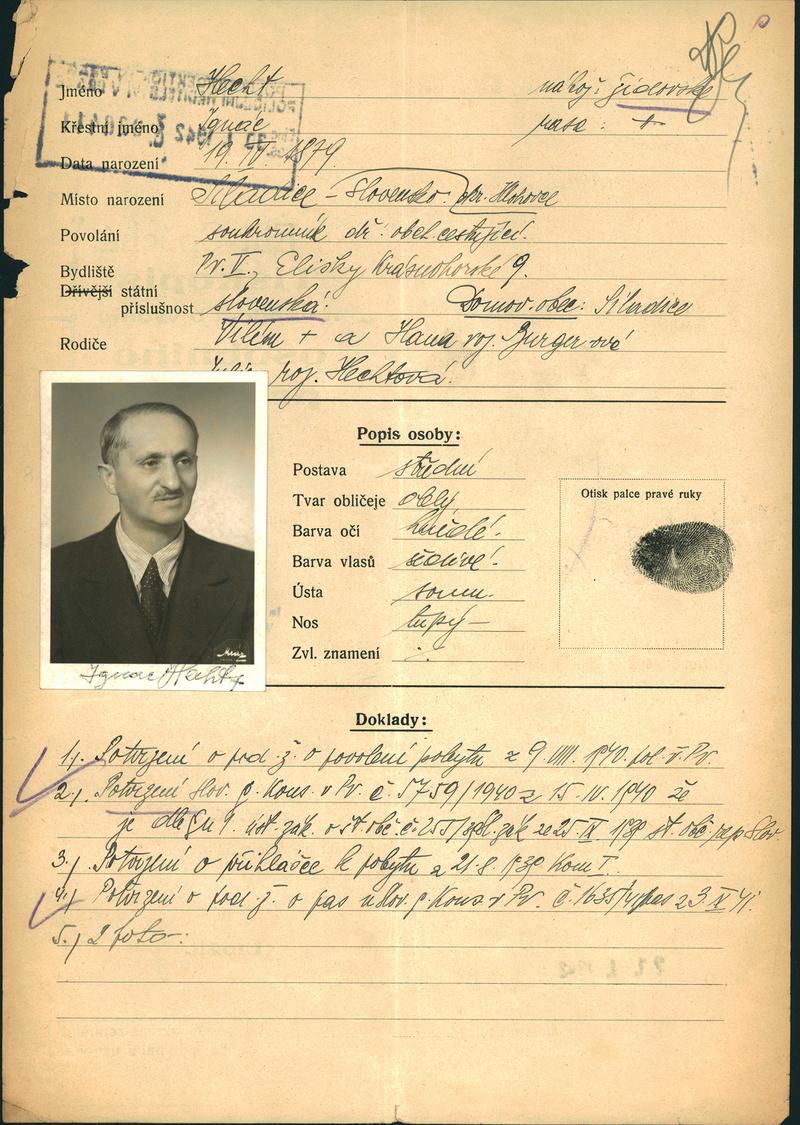 Jméno Hecht nábož: židovské
Křestní jméno Ignác rasa: +
Data narození 19. IV. 1879.
Místo narození Siladice - Slovensko opr. Hlohovce
Povolání soukromník dř. obch. cestující.
Bydliště Pr. V., Elišky Krásnohorské 9.
Dřívější státní
příslušnost slovenská. Domov. obec: Siladice
Rodiče Vilém + a Hana roz. Burger-ové
roz. Hechtová.
Popis osoby:
Postava střední
Tvar obličeje oblý
Barva očí hnědé.
Barva vlasů šedivé.
Ústa soum.
Nos tupý
Zvl. znamení
Otisk palce pravé ruky
Ignac Hecht
Doklady:
1./. Potvrzení o pod. ž. o povolení pobytu z 9. 1940. pol. ř. Pr.
2./. Potvrzení slov. g. Kons. v Pr. č. 5759/1940 z 15. IV. 1940 že
je dle § 1. úst. zák. o st. obč. č. 255/ zák ze 25. IX 1939 st. obč. rep Slov
3./ Potvrzení o přihlášce k pobytu z 21. 8. 1939 Kom I.
4./ Potvrzení o pod. ž. o pas u slov. g. Konz v Pr. č. 1635/41 pas z 3. X 41.
5./ 2 foto